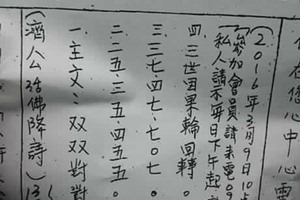 心中心靈
(2016年3月9日10点
(參加會員請來電09
私人請示每日下午起
四三世因果輪回轉。
三三七四七、七0七。
二二五三五四五五。
一主文:双双對對
(濟公活佛降詩)(3